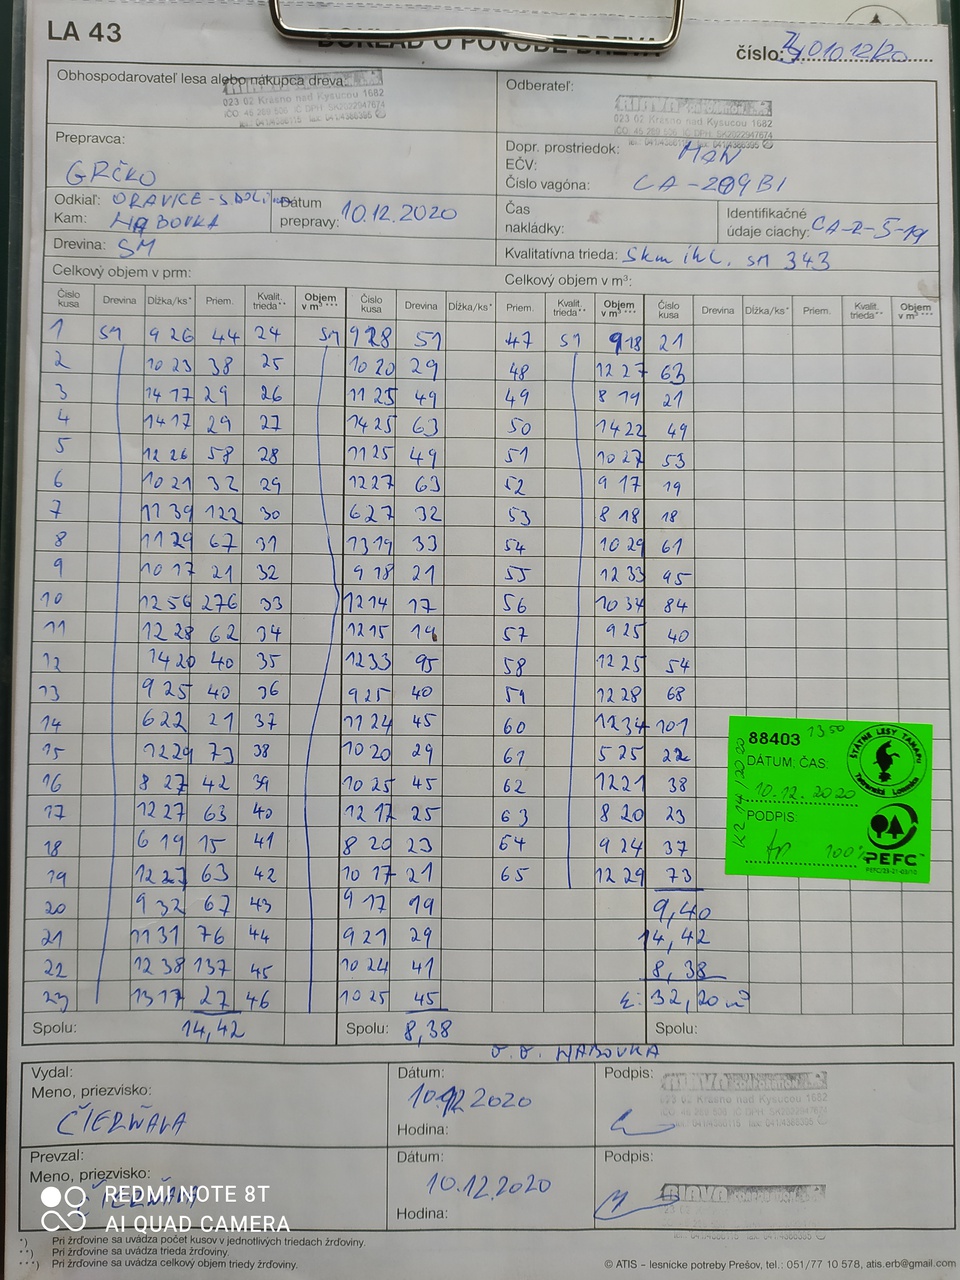 LA 43
DOKLAD O PÔVODE DREVA
číslo: 3/01012/20
Obhospodarovateľ lesa alebo nákupca dreva:
023 02 Krásno nad Kysucou 1682
Odberateľ:
RIAVA CORPORATION
023 02 Krásno nad Kysucou 1682
Prepravca:
GRČKO
Dopr. prostriedok: MAN
EČV:
Číslo vagóna: CA-209BI
Odkiaľ: ORAVICE-
Kam: HABOVKA
Dátum prepravy: 10.12.2020
Čas nakládky:
Identifikačné údaje ciachy: CA-2-5-19
Drevina: SM
Kvalitatívna trieda: Skm ihl. SM 343
Celkový objem v prm:
Celkový objem v m³:
Číslo kusa Drevina Dĺžka/ks* Priem. Kvalit. trieda** Objem v m³ *** Číslo kusa Drevina Dĺžka/ks* Priem. Kvalit. trieda** Objem v m³ *** Číslo kusa Drevina Dĺžka/ks* Priem. Kvalit. trieda** Objem v m³ ***
1 SM 9 26 44 24 SM 9 28 51 47 SM 9 18 21
2 10 23 38 25 10 20 29 48 12 27 63
3 14 17 29 26 11 25 49 49 8 19 21
4 14 17 29 27 14 25 63 50 14 22 49
5 12 26 58 28 11 25 49 51 10 27 53
6 10 21 32 29 12 27 63 52 9 17 19
7 11 39 122 30 6 27 32 53 8 18 18
8 11 29 67 31 13 19 33 54 10 29 61
9 10 17 21 32 9 18 21 55 12 33 95
10 12 56 276 33 12 14 17 56 10 34 84
11 12 28 62 34 12 15 19 57 9 25 40
12 14 20 40 35 12 33 95 58 12 25 54
13 9 25 40 36 9 25 40 59 12 28 68
14 6 22 21 37 11 24 45 60 12 34 101
15 12 29 73 38 10 20 29 61 5 25 22
16 8 27 42 39 10 25 45 62 12 21 38
17 12 27 63 40 12 17 25 63 8 20 23
18 6 19 15 41 8 20 23 64 9 24 37
19 12 27 63 42 10 17 21 65 12 29 73
20 9 32 67 43 9 17 19 9,40
21 11 31 76 44 9 21 29 14,42
22 12 38 137 45 10 24 41 8,38
23 13 17 27 46 10 25 45 Σ: 32,20 m³
Spolu: 14,42 Spolu: 8,38 Spolu:
88403 1350
DÁTUM, ČAS:
10.12.2020
PODPIS:
100%
ŠTÁTNE LESY TANAPU
Tatranská Lomnica
PEFC™
HABOVKA
Vydal:
Meno, priezvisko:
ČIERŇAVA
Dátum:
10.12.2020
Hodina:
Podpis:
RIAVA CORPORATION
023 02 Krásno nad Kysucou 1682
Prevzal:
Meno, priezvisko:
ČIERŇAVA
Dátum:
10.12.2020
Hodina:
Podpis:
RIAVA CORPORATION
REDMI NOTE 8T
AI QUAD CAMERA
*) Pri žrďovine sa uvádza počet kusov v jednotlivých triedach žrďoviny.
**) Pri žrďovine sa uvádza trieda žrďoviny.
***) Pri žrďovine sa uvádza celkový objem triedy žrďoviny.
© ATIS – lesnícke potreby Prešov, tel.: 051/77 10 578, atis.erb@gmail.com